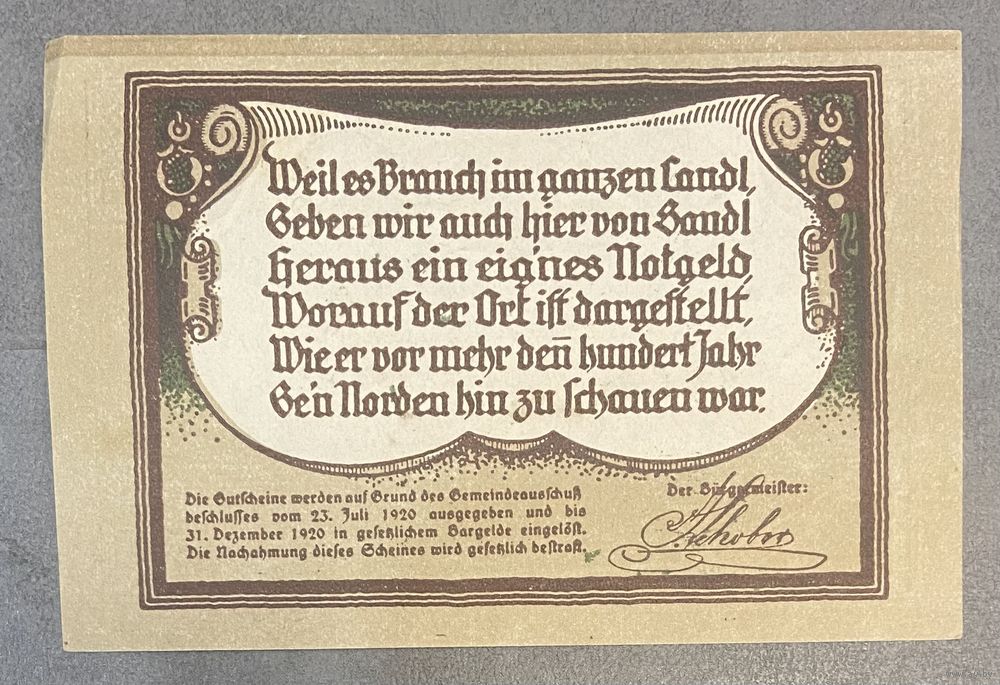 Weil es Brauch im ganzen Landl,
Geben wir auch hier von Sandl
Heraus ein eig'nes Notgeld,
Worauf der Ort ist dargestellt,
Wie er vor mehr den̄ hundert Jahr
Ge'n Norden hin zu schauen war.
Die Gutscheine werden auf Grund des Gemeindeausschuß
beschlusses vom 23. Juli 1920 ausgegeben und bis
31. Dezember 1920 in gesetzlichem Bargelde eingelöst.
Die Nachahmung dieses Scheines wird gesetzlich bestraft.
Der Bürgermeister:
Schober